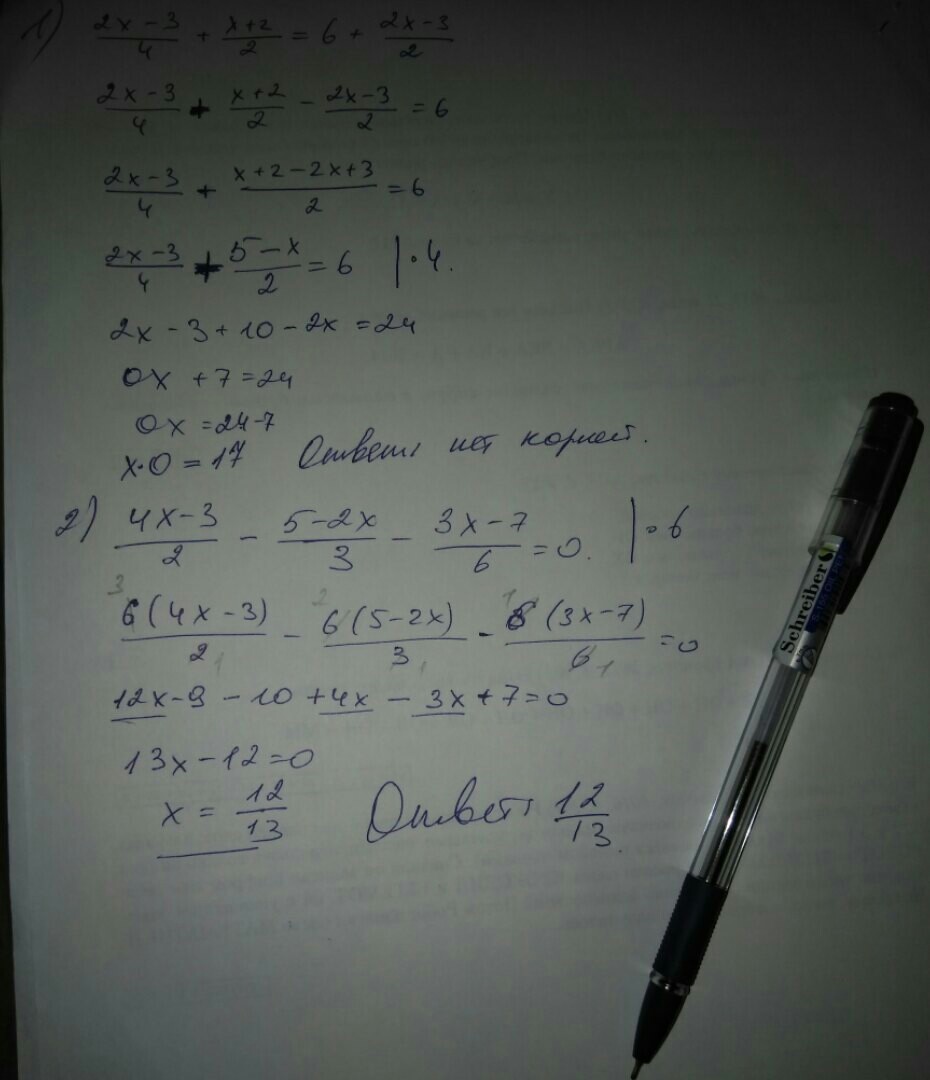 1) (2x-3)/4 + (x+2)/2 = 6 + (2x-3)/2
(2x-3)/4 + (x+2)/2 - (2x-3)/2 = 6
(2x-3)/4 + (x+2-2x+3)/2 = 6
(2x-3)/4 + (5-x)/2 = 6 |·4.
2x-3+10-2x=24
0x+7=24
0x=24-7
x·0=17 Ответ: нет корней.
2) (4x-3)/2 - (5-2x)/3 - (3x-7)/6 = 0. |·6
6(4x-3)/2 - 6(5-2x)/3 - 6(3x-7)/6 = 0
12x-9-10+4x-3x+7=0
13x-12=0
x = 12/13 Ответ: 12/13.
Schreiber